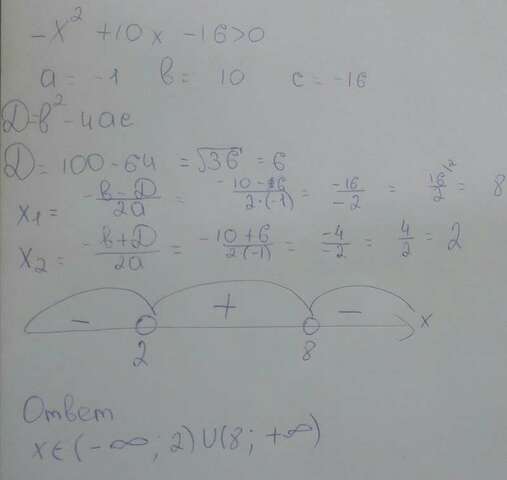 -x² + 10x - 16 > 0
a = -1 в = 10 c = -16
D = в² - 4ac
D = 100 - 64 = √36 = 6
x₁ = (-в - D)/(2a) = (-10 - 6)/(2·(-1)) = (-16)/(-2) = 16/2 = 8
x₂ = (-в + D)/(2a) = (-10 + 6)/(2(-1)) = (-4)/(-2) = 4/2 = 2
- + - x
2 8
Ответ
x ∈ (-∞; 2) ∪ (8; +∞)